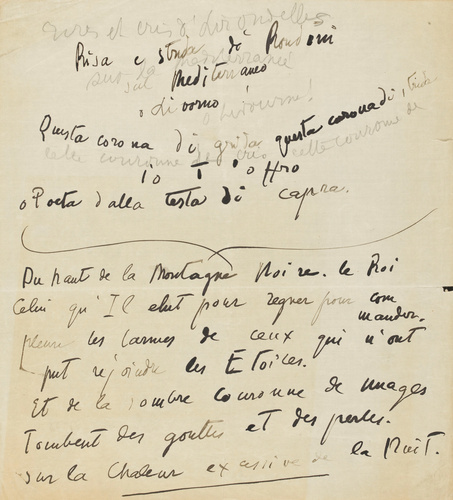 rires et cris d'hirondelles
Risa e strida di Rondoni
sur la mediterranée
sul Mediterraneo
o Livorno!
o Livourne!
Questa corona di grida, questa corona di strida
cette couronne de cris, cette couronne de
io T'offro
o Poeta dalla testa di capra.
Du haut de la Montagne Noire, le Roi
Celui qu'Il elut pour regner pour com
mander.
pleure les larmes de ceux qui n'ont
put rejoindre les Etoiles.
Et de la sombre couronne de nuages
Tombent des gouttes et des perles.
sur la chaleur excessive de la Nuit.